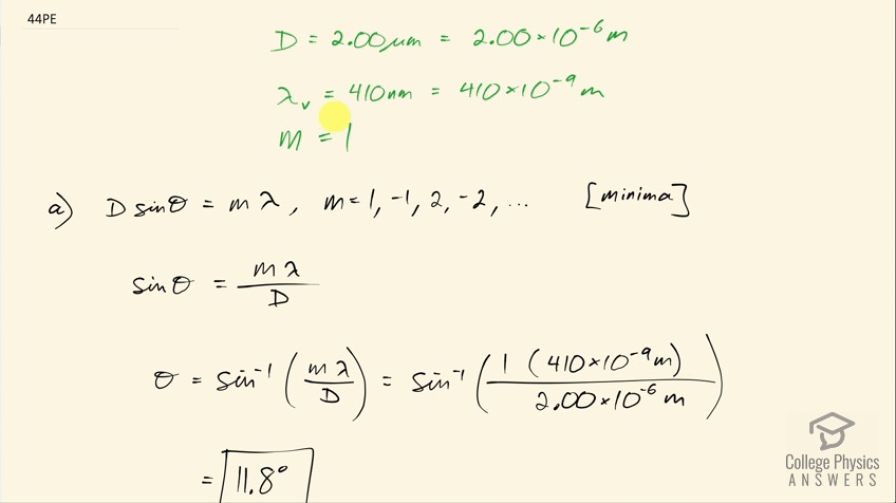 44PE
D = 2.00 μm = 2.00 × 10⁻⁶ m
λᵥ = 410 nm = 410 × 10⁻⁹ m
m = 1
a) D sinθ = m λ, m = 1, -1, 2, -2, ... [minima]
sinθ = mλ / D
θ = sin⁻¹ (mλ / D) = sin⁻¹ (1 (410 × 10⁻⁹ m) / 2.00 × 10⁻⁶ m)
= 11.8°
College Physics
ANSWERS